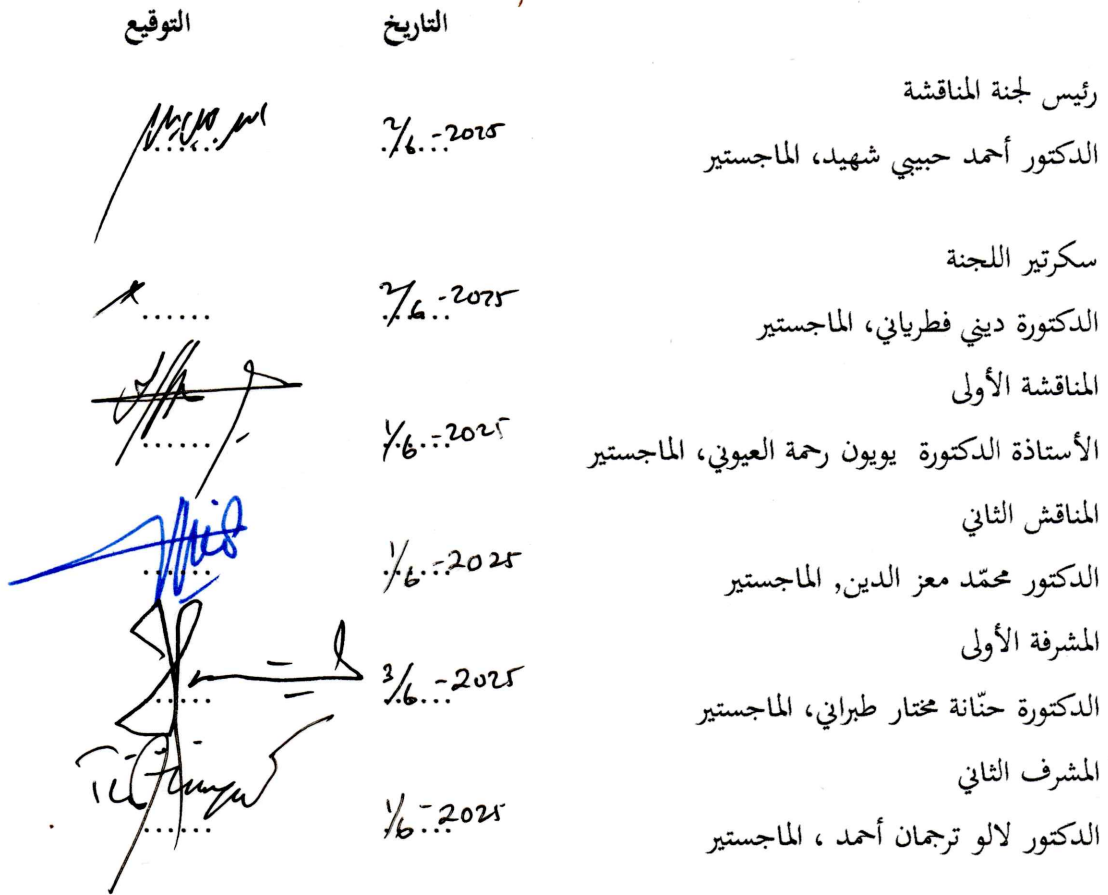 التاريخ التوقيع
رئيس لجنة المناقشة
الدكتور أحمد حبيبي شهيد، الماجستير 2/6-2025
سكرتير اللجنة
الدكتورة ديني فطرياني، الماجستير 2/6-2025 ......
المناقشة الأولى
الأستاذة الدكتورة يويون رحمة العيوني، الماجستير 1/6-2025 ......
المناقش الثاني
الدكتور محمّد معز الدين, الماجستير 1/6-2025 ......
المشرفة الأولى
الدكتورة حنّانة مختار طبراني، الماجستير 3/6-2025 ......
المشرف الثاني
الدكتور لالو ترجمان أحمد ، الماجستير 1/6-2025 ......